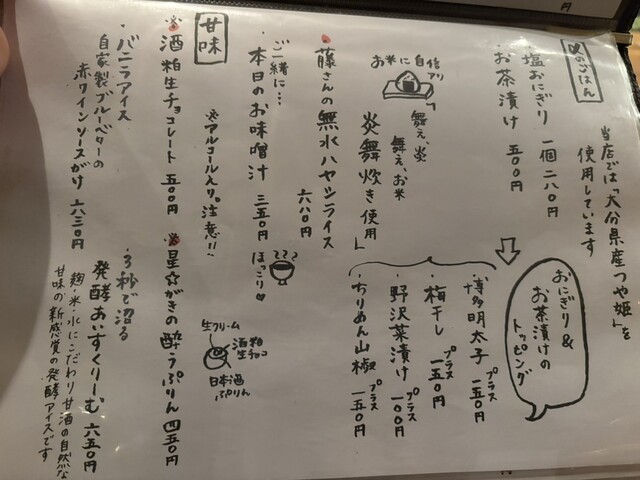 〆のごはん
当店では「大分県産つや姫」を
使用しています
・塩おにぎり 一個 二八〇円
・お茶漬け 五〇〇円
おにぎり&
お茶漬けの
トッピング
・博多明太子 プラス一五〇円
・梅干し プラス一五〇円
・野沢菜漬け プラス一〇〇円
・ちりめん山椒 プラス一五〇円
お米に自信アリ
舞え、炎
舞え、お米
炎舞炊き使用
・藤さんの無水ハヤシライス
六八〇円
ご一緒に…
・本日のお味噌汁 三五〇円
ほっこり
甘味
※アルコール入り。注意!!
※酒粕生チョコレート 五〇〇円
※星☆がきの酔うぷりん 四五〇円
生クリーム
酒粕
生チョコ
日本酒
ぷりん
・バニラアイス
自家製ブルーベリーの
赤ワインソースがけ 六三〇円
・3秒で沼る
発酵あいすくりーむ 六五〇円
麹・米・水にこだわり甘酒の自然な
甘味の新感覚の発酵アイスです
円